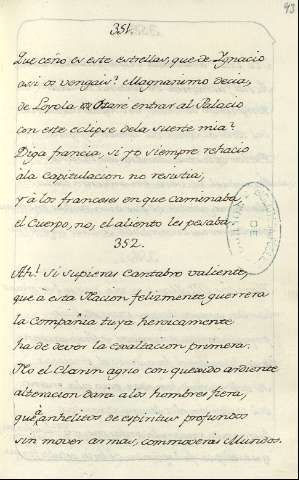 93
351.
Que ceño es este estrellas, que de Ygnacio
asi os vengais? Magnanimo decia,
de Loyola Osare entrar al Palacio
con este eclipse dela suerte mia?
Diga francia, si yo siempre rehacio
ala Capitulacion no resistia;
y á los franceses en que caminaba
el Cuerpo, no, el aliento les pesaba
352.
Ah! Si supieras Cantabro valiente,
que á esta Nacion felizmente guerrera
la Compañia tuya heroicamente
ha de dever la exaltacion primera.
No el Clarin agrio con quexido ardiente
alteracion dará alos hombres fiera,
que á anhelitos de espiritus profundos
sin mover armas, conmoverás Mundos.